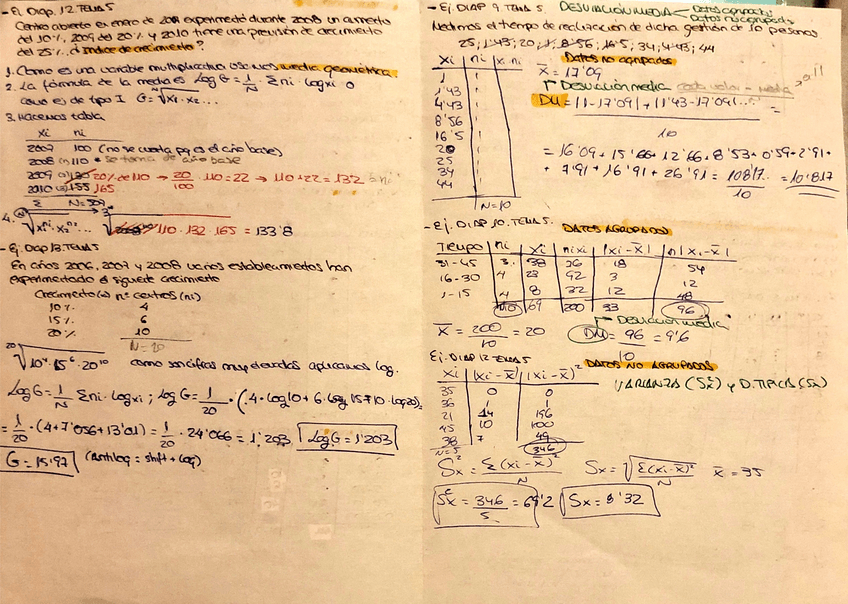 - Ej. Diap. 12 TEMA 5
Centro abierto en enero de 2007 experimentó durante 2008 un aumento
del 10%, 2009 del 20% y 2010 tiene una previsión de crecimiento
del 25%. ¿Índice de crecimiento?
1. Como es una variable multiplicativa usamos media geométrica
2. La fórmula de la media es Log G = 1/N · Σ ni · log xi o
como es de tipo I G = ᴺ√x1 · x2 ...
3. Hacemos tabla
xi ni
2007 100 (no se cuenta pq es el año base)
2008 110 se toma de año base
2009 132 20% de 110 → 20/100 · 110 = 22 → 110 + 22 = 132
2010 155 165
Σ N=
4. ᴺ√x1ⁿⁱ · x2ⁿ² ... ³√110 · 132 · 165 = 133'8
- Ej. Diap 13. TEMA 5
En años 2006, 2007 y 2008 varios establecimientos han
experimentado el siguiente crecimiento
Crecimiento (xi) nº centros (ni)
10% 4
15% 6
20% 10
N = 20
²⁰√10⁴ · 15⁶ · 20¹⁰ como son cifras muy elevadas aplicamos log.
Log G = 1/N Σ ni · log xi ; Log G = 1/20 · (4 · log 10 + 6 · log 15 + 10 · log 20) =
= 1/20 · (4 + 7'056 + 13'01) = 1/20 · 24'066 = 1'203 Log G = 1'203
G = 15'97 (Antilog = shift + log)
- Ej. DIAP 9 TEMA 5. DESVIACIÓN MEDIA Datos agrupados
Datos no agrupados
Medimos el tiempo de realización de dicha gestión de 10 personas
25; 1'43; 20; 1; 8'56; 16'5; 34; 4'43; 44
xi ni xi ni Datos no agrupados
x̄ = 17'09
1 1
1'43 1
4'43 1
8'56 1
16'5 1
20 1
25 1
34 1
44 1
N = 10
Desviación media cada valor - media
DM = |1 - 17'09| + |1'43 - 17'09| ... / 10 =
= 16'09 + 15'66 + 12'66 + 8'53 + 0'59 + 2'91 +
+ 7'91 + 16'91 + 26'91 = 108'17 / 10 = 10'817
- Ej. DIAP 10. TEMA 5. DATOS AGRUPADOS
Tiempo ni xi nixi |xi - x̄| n|xi - x̄|
31-45 3 38 76 18 54
16-30 4 23 92 3 12
1-15 4 8 32 12 48
10 69 200 33 96
x̄ = 200/10 = 20 Desviación media
DM = 96/10 = 9'6
Ej. DIAP 12 TEMA 5 DATOS NO AGRUPADOS
xi |xi - x̄| |xi - x̄|² VARIANZA (Sx²) y D. TIPICA (Sx)
35 0 0
36 1 1
21 14 196
45 10 100
38 7 49
N=5 346
Sx² = Σ(xi - x̄)² / N Sx = √Σ(xi - x̄)² / N x̄ = 35
Sx² = 346/5 = 69'2 Sx = 8'32